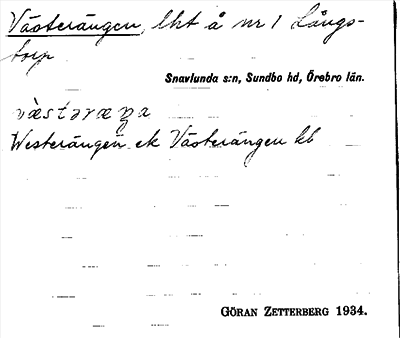 Västerängen, lht å nr 1 Långs-
torp
Snavlunda s:n, Sundbo hd, Örebro län.
væstəræŋa
Westerängen ek Västerängen kb
GÖRAN ZETTERBERG 1934.